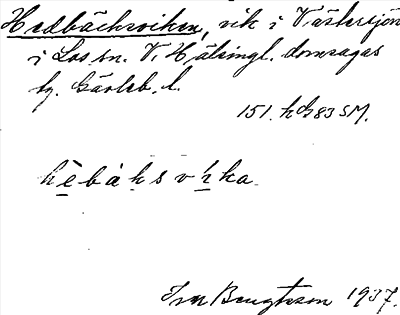 Hedbäcksviken, vik i Västersjön
i Los sn. V. Hälsingl. domsagas
tg. Gävleb. l.
151. h G 83 SM.
hèbàksvıka
Ivar Bengtsson 1937.